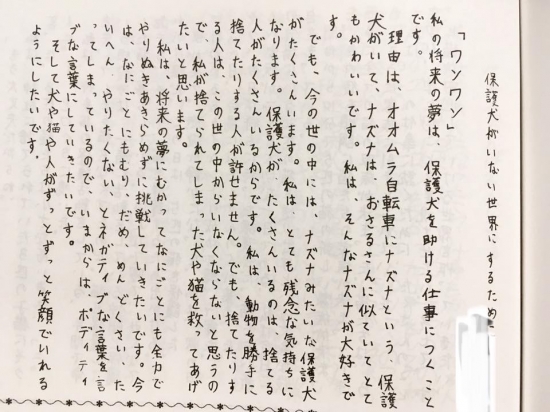 保護犬がいない世界にするため
「ワンワン」
私の将来の夢は、保護犬を助ける仕事につくこと
です。
理由は、オオムラ自転車にナズナという、保護
犬がいて、ナズナは、おさるさんに似ていてとて
もかわいいです。私は、そんなナズナが大好きで
す。
でも、今の世の中には、ナズナみたいな保護犬
がたくさんいます。私は、とても残念な気持ちに
なります。保護犬が、たくさんいるのは、捨てる
人がたくさんいるからです。私は、動物を勝手に
捨てたりする人が許せません。でも、捨てたりす
る人は、この世の中からいなくならないと思うの
で、私が捨てられてしまった犬や猫を救ってあげ
たいと思います。
私は、将来の夢にむかってなにごとにも全力で
やりぬきあきらめずに挑戦していきたいです。今
は、なにごとにもむり、だめ、めんどくさい、た
いへん、やりたくない、とネガティブな言葉を言
ってしまっているので、いまからは、ポディティ
ブな言葉にしていきたいです。
そして犬や猫や人がずっとずっと笑顔でいれる
ようにしたいです。